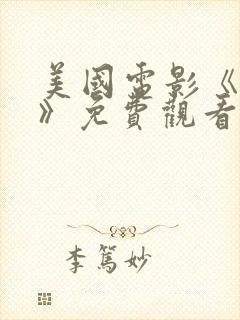 美國電影《
》免費觀看
李篤妙